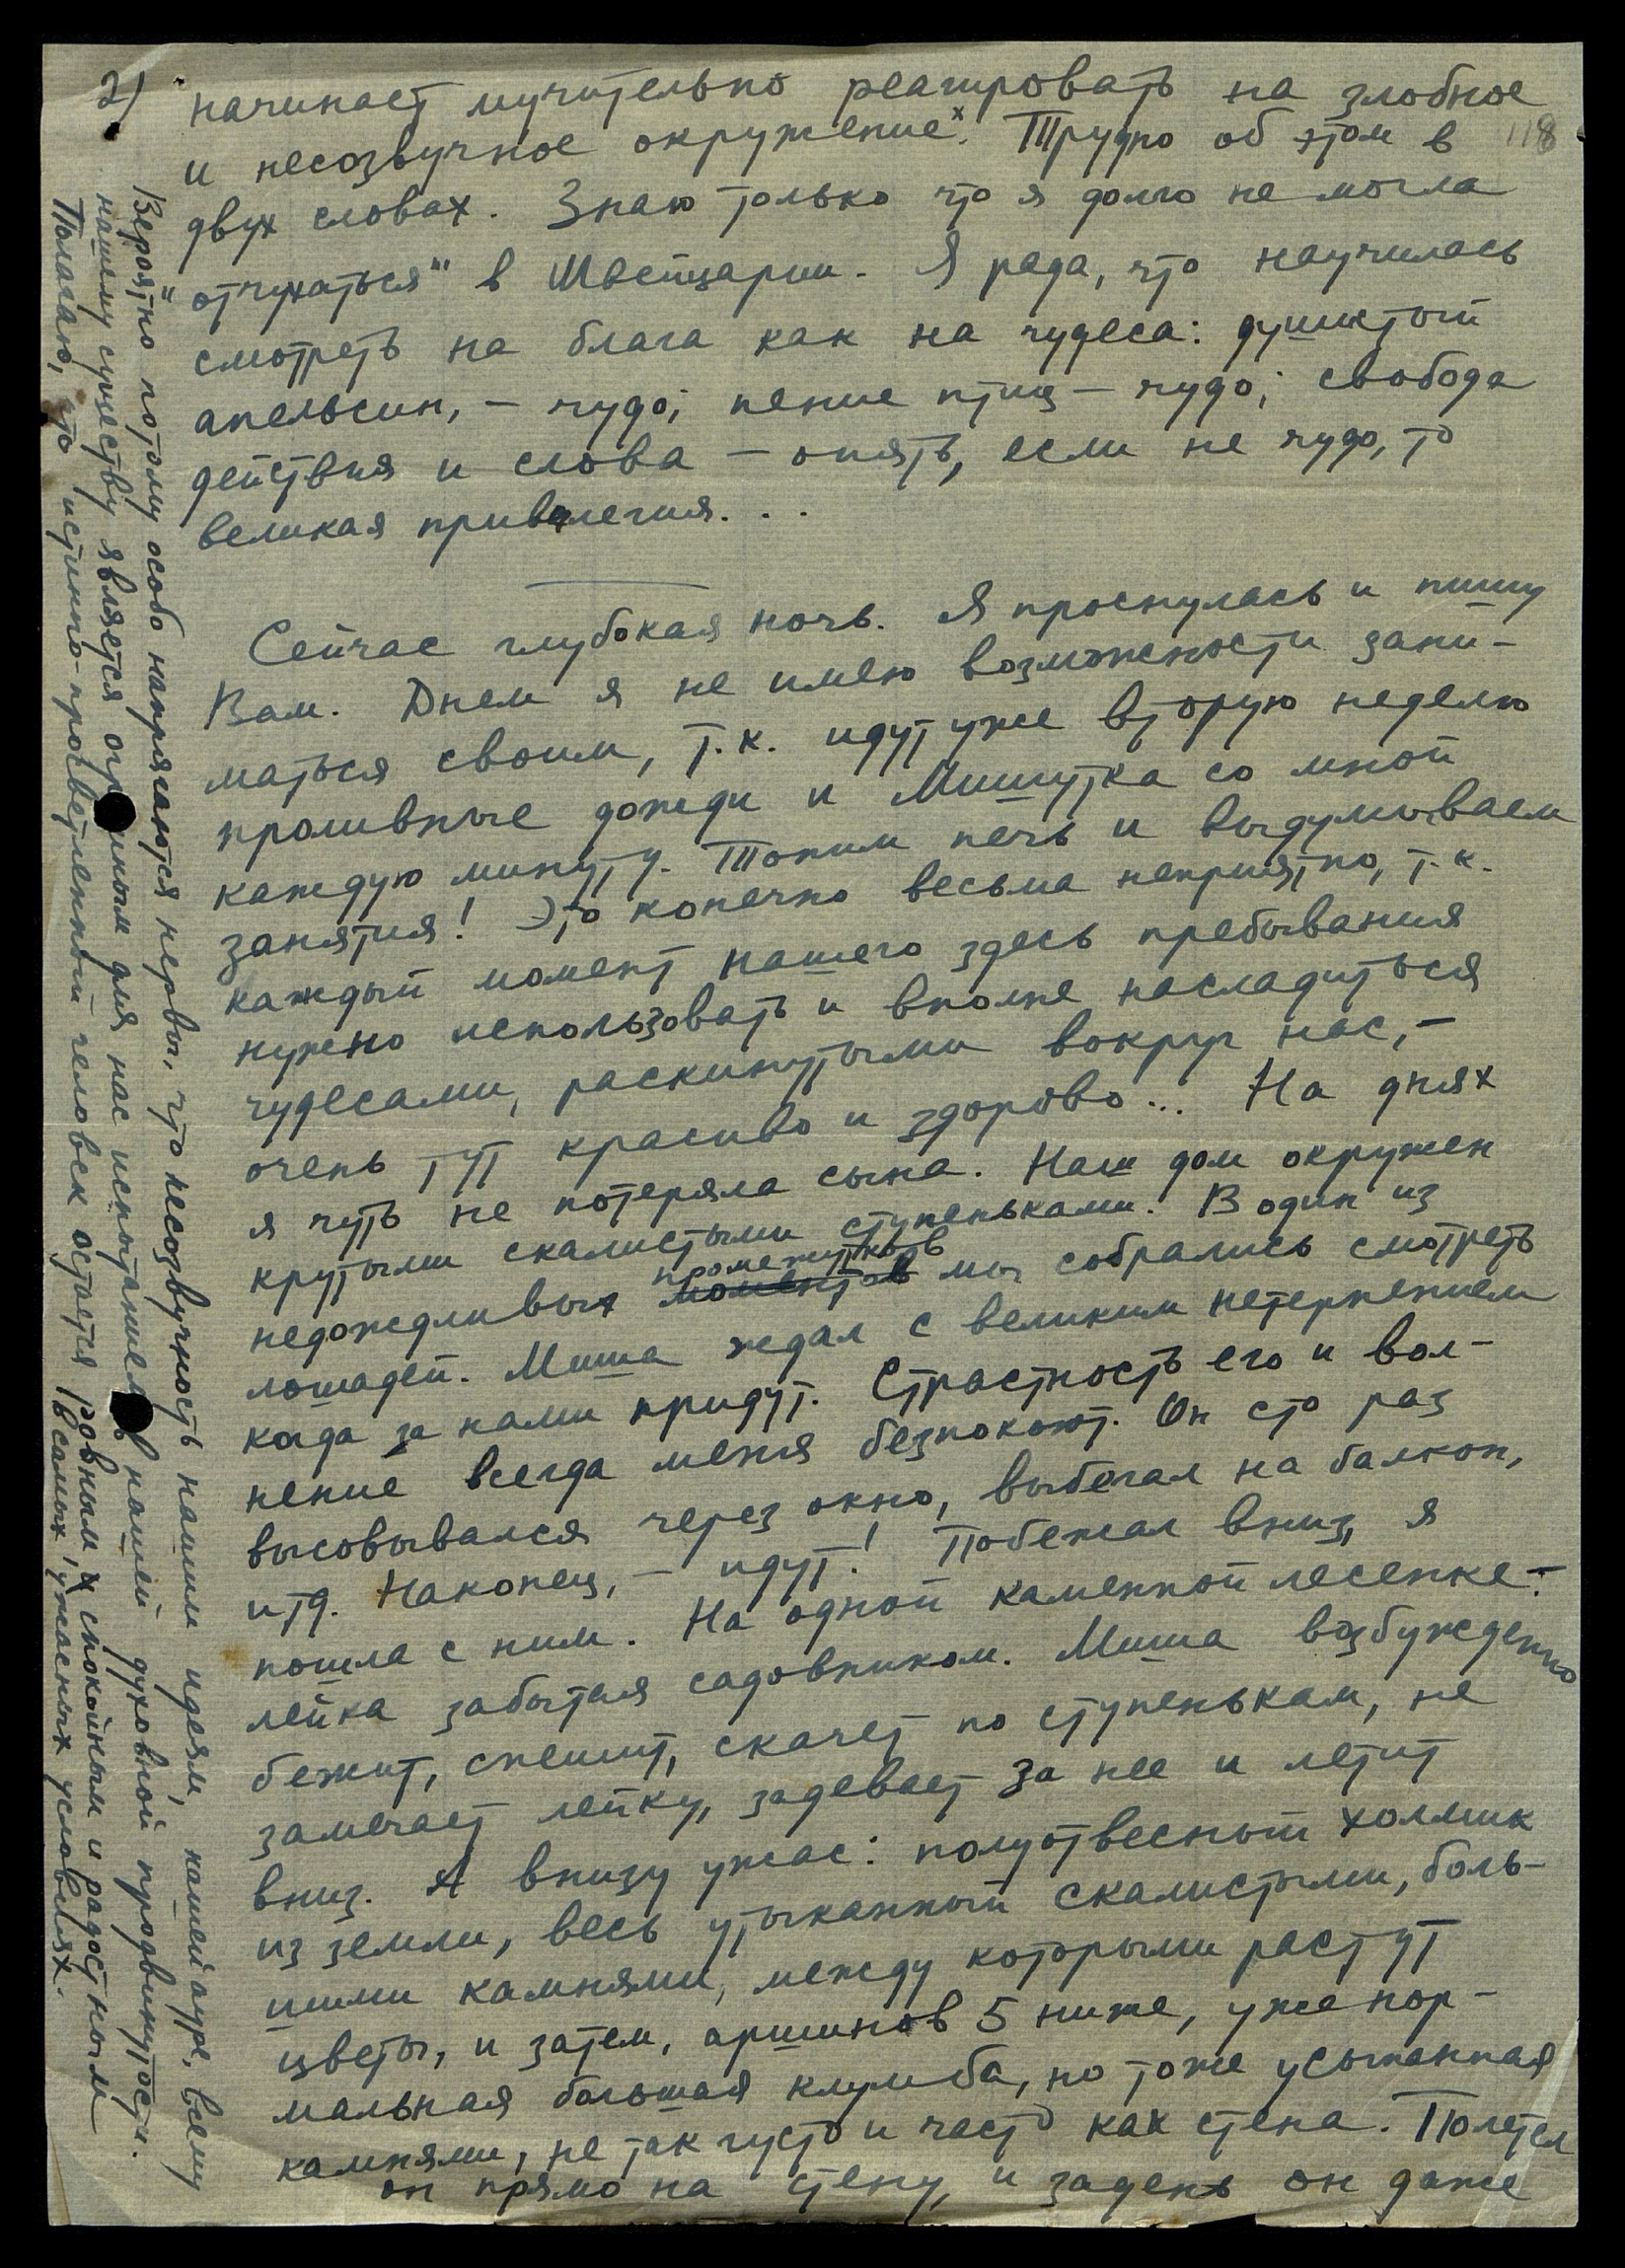 2)
118
начинает мучительно реагировать на злобное
и несозвучное окружение×. Трудно об этом в
двух словах. Знаю только что я долго не могла
"отчухаться" в Швейцарии. Я рада, что научилась
смотреть на блага как на чудеса: душистый
апельсин, – чудо; пение птиц – чудо; свобода
действия и слова – опять, если не чудо, то
великая привелегия...
Сейчас глубокая ночь. Я проснулась и пишу
Вам. Днем я не имею возможности зани-
маться своим, т.к. идут уже вторую неделю
проливные дожди и Мишутка со мной
каждую минуту. Топим печь и выдумываем
занятия! Это конечно весьма неприятно, т.к.
каждый момент нашего здесь пребывания
нужно использовать и вполне насладиться
чудесами, раскинутыми вокруг нас, –
очень тут красиво и здорово... На днях
я чуть не потеряла сына. Наш дом окружен
крутыми скалистыми ступеньками. В один из
недождливых моментов промежутков мы собрались смотреть
лошадей. Миша ждал с великим нетерпением
когда за нами придут. Страстность его и вол-
нение всегда меня безпокоют. Он сто раз
высовывался через окно, выбегал на балкон,
итд. Наконец, – идут! Побежал вниз, я
пошла с ним. На одной каменной лесенке –
лейка забытая садовником. Миша возбужденно
бежит, спешит, скачет по ступенькам, не
замечает лейку, задевает за нее и летит
вниз. А внизу ужас: полуотвесный холмик
из земли, весь утыканный скалистыми, боль-
шими камнями, между которыми растут
цветы, и затем, аршинов 5 ниже, уже нор-
мальная большая клумба, но тоже усыпанная
камнями, не так густо и часто как стена. Полетел
он прямо на стену, и задень он даже
Вероятно потому особо напрягаются нервы, что несозвучность нашим идеям, нашей ауре, всему
нашему существу является огр мным для нас испытанием в нашей духовной продвинутости.
Полагаю, что истинно-просветленный человек остается ровным, спокойным и радостным
в самых ужасных условиях.